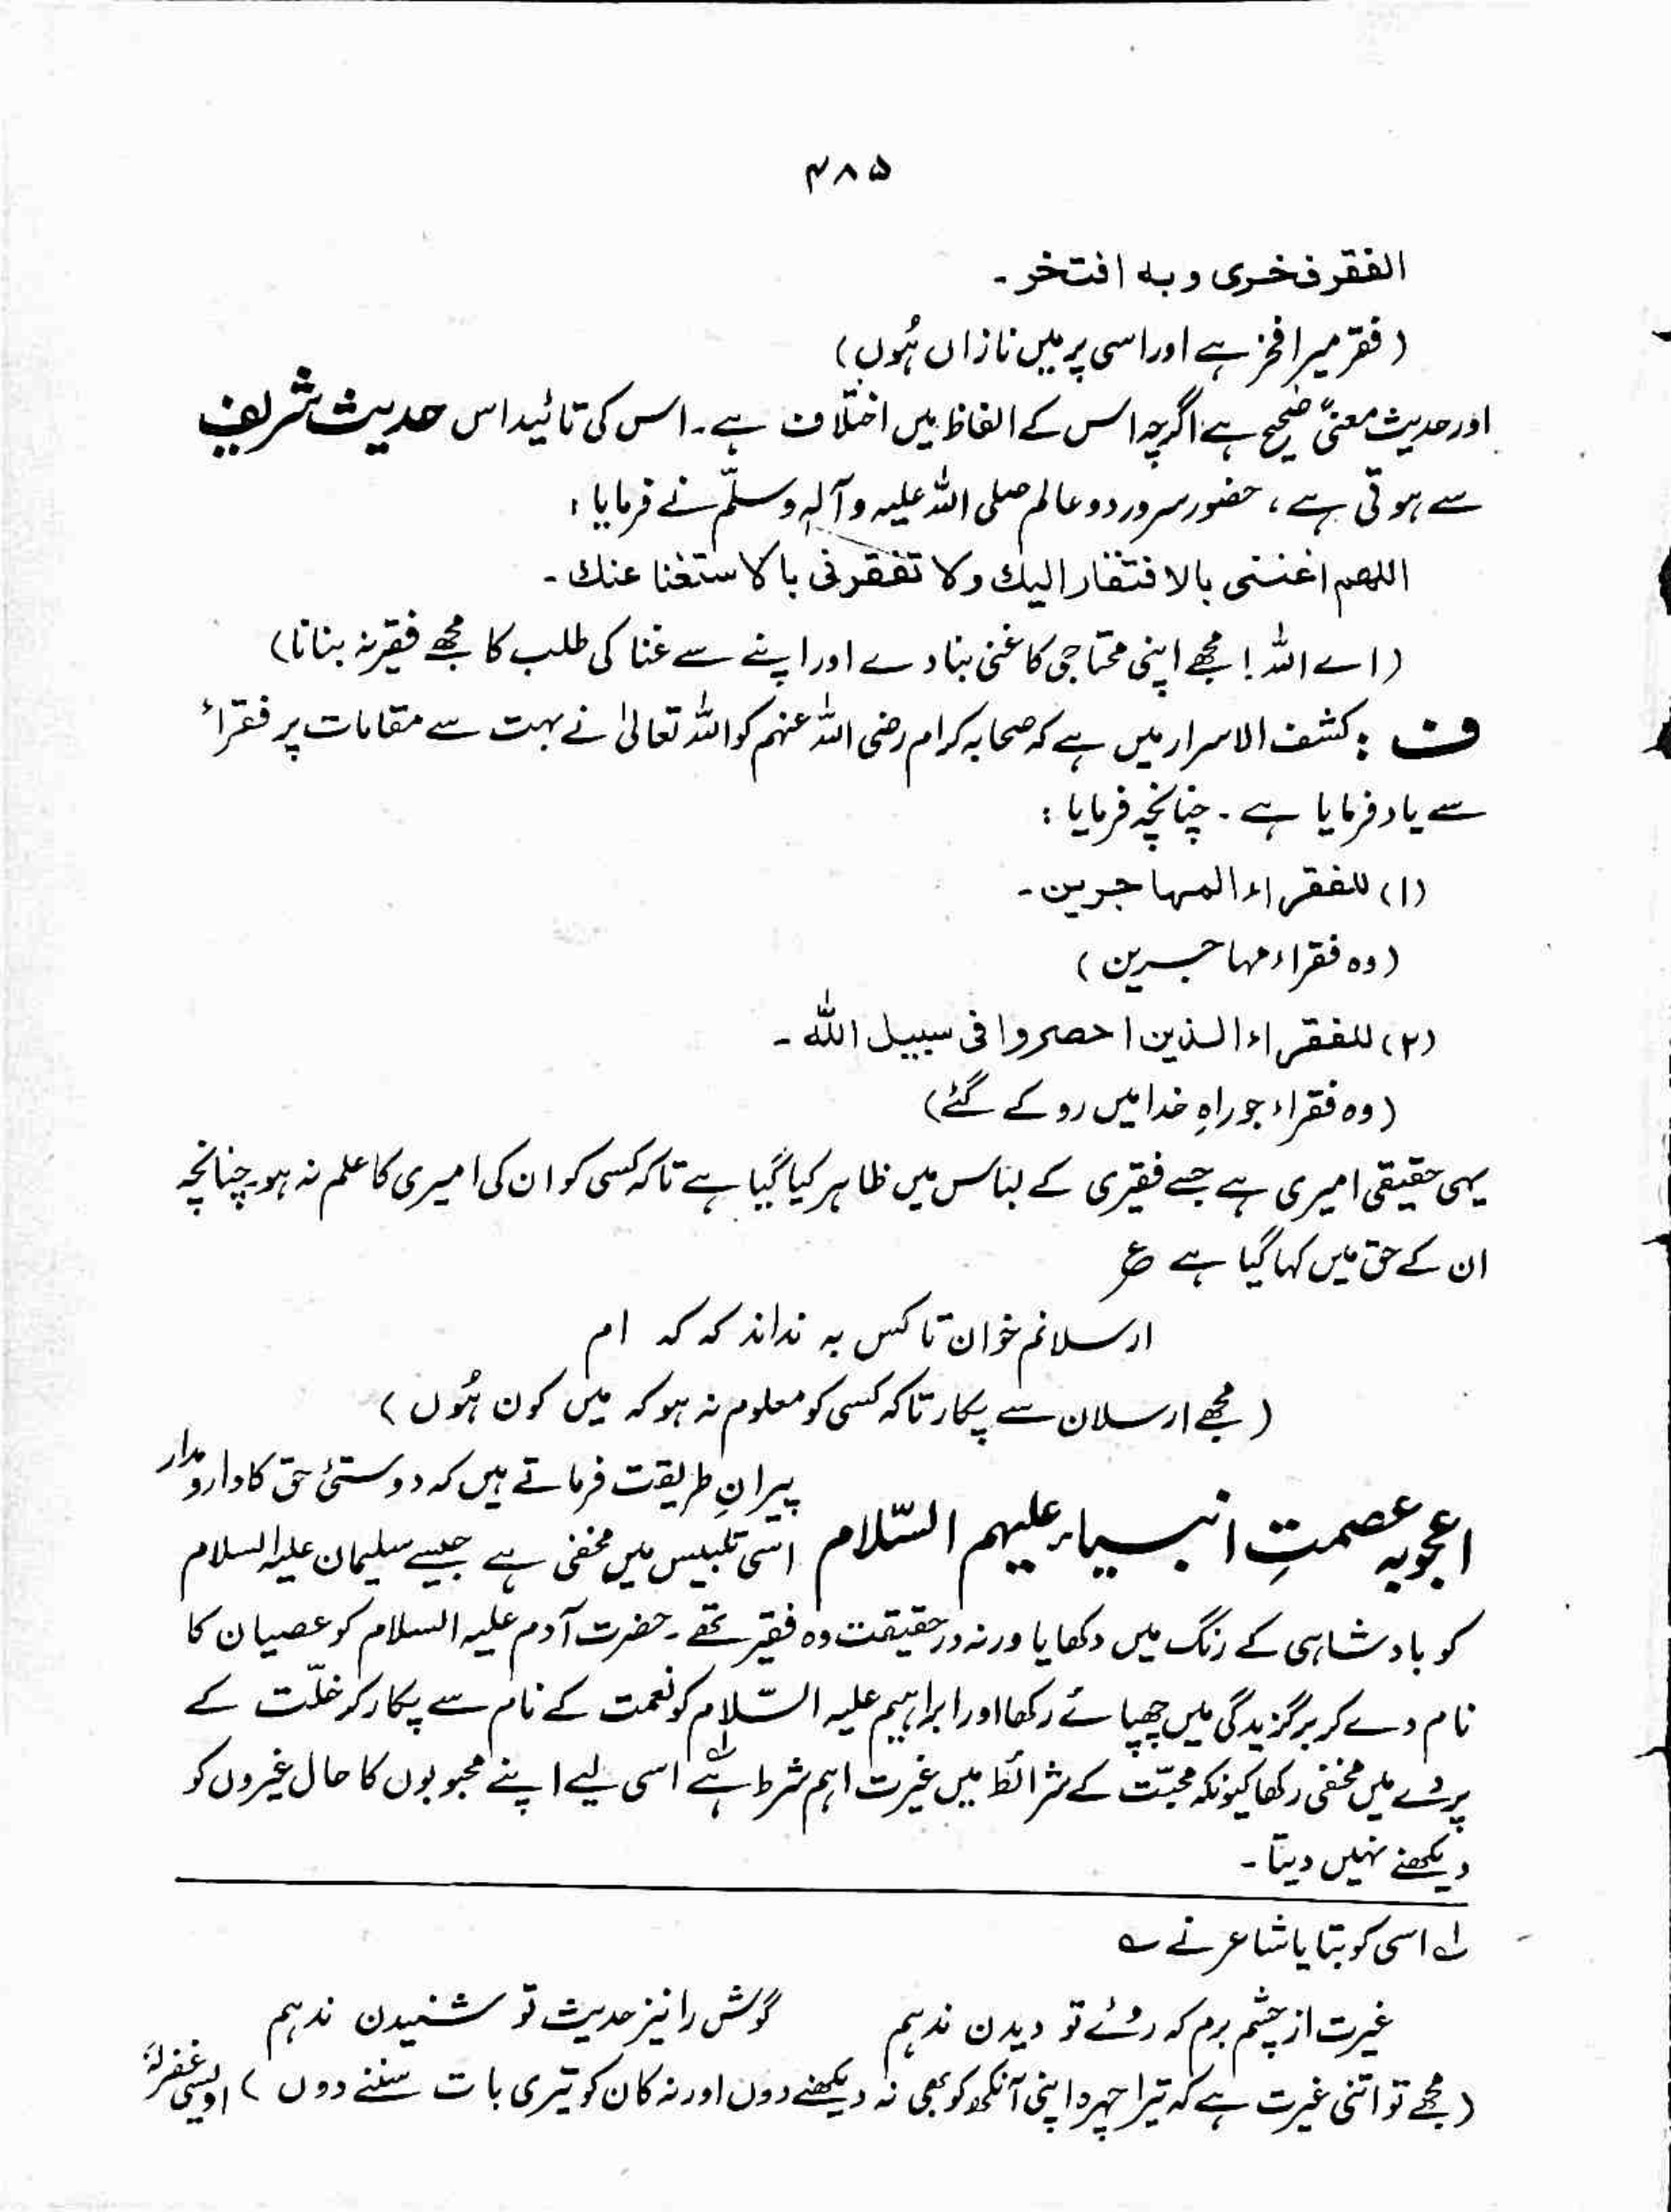 ۴۸۵
الفقر فخری و به افتخر ۔
( فقر میرا فخر ہے اور اسی پر میں نازاں ہُوں )
اور حدیث معنیً صحیح ہے اگرچہ اس کے الفاظ میں اختلاف ہے ۔ اس کی تائید اس حدیث شریف
سے ہوتی ہے ، حضور سرور دو عالم صلی اللہ علیہ وآلہٖ وسلّم نے فرمایا :
اللھم اغننی بالافتقار الیك ولا تفقرنی بالاستغنا عنك ۔
( اے اللہ ! مجھے اپنی محتاجی کا غنی بنا دے اور اپنے سے غنا کی طلب کا مجھے فقیر نہ بنانا )
ف : کشف الاسرار میں ہے کہ صحابہ کرام رضی اللہ عنہم کو اللہ تعالیٰ نے بہت سے مقامات پر فقراء
سے یاد فرمایا ہے ۔ چنانچہ فرمایا :
(۱) للفقراء المہاجرین ۔
( وہ فقراء مہاجرین )
(۲) للفقراء الذین احصروا فی سبیل اللہ ۔
( وہ فقراء جو راہِ خدا میں روکے گئے )
یہی حقیقی امیری ہے جسے فقیری کے لباس میں ظاہر کیا گیا ہے تاکہ کسی کو ان کی امیری کا علم نہ ہو ۔ چنانچہ
ان کے حق میں کہا گیا ہے ع
ارسلانم خوان تا کس بہ نداند کہ کہ ام
( مجھے ارسلان سے پکار تاکہ کسی کو معلوم نہ ہو کہ میں کون ہُوں )
اعجوبہ عصمتِ انبیاء علیہم السّلام پیرانِ طریقت فرماتے ہیں کہ دوستیٔ حق کا دارومدار
اسی تلبیس میں مخفی ہے جیسے سلیمان علیہ السلام
کو بادشاہی کے رنگ میں دکھایا ورنہ درحقیقت وہ فقیر تھے ۔ حضرت آدم علیہ السلام کو عصیان کا
نام دے کر برگزیدگی میں چھپائے رکھا اور ابراہیم علیہ السّلام کو نعمت کے نام سے پکار کر خلّت کے
پردے میں مخفی رکھا کیونکہ محبّت کے شرائط میں غیرت اہم شرط ہے لہ اسی لیے اپنے محبوبوں کا حال غیروں کو
دیکھنے نہیں دیتا ۔
لہ اسی کو بتایا شاعر نے ؎
غیرت از چشم برم کہ روئے تو دیدن ندہم گوش را نیز حدیث تو شنیدن ندہم
( مجھے تو اتنی غیرت ہے کہ تیرا چہرہ اپنی آنکھ کو بھی نہ دیکھنے دوں اور نہ کان کو تیری بات سننے دوں ) اویسی غفرلہٗ